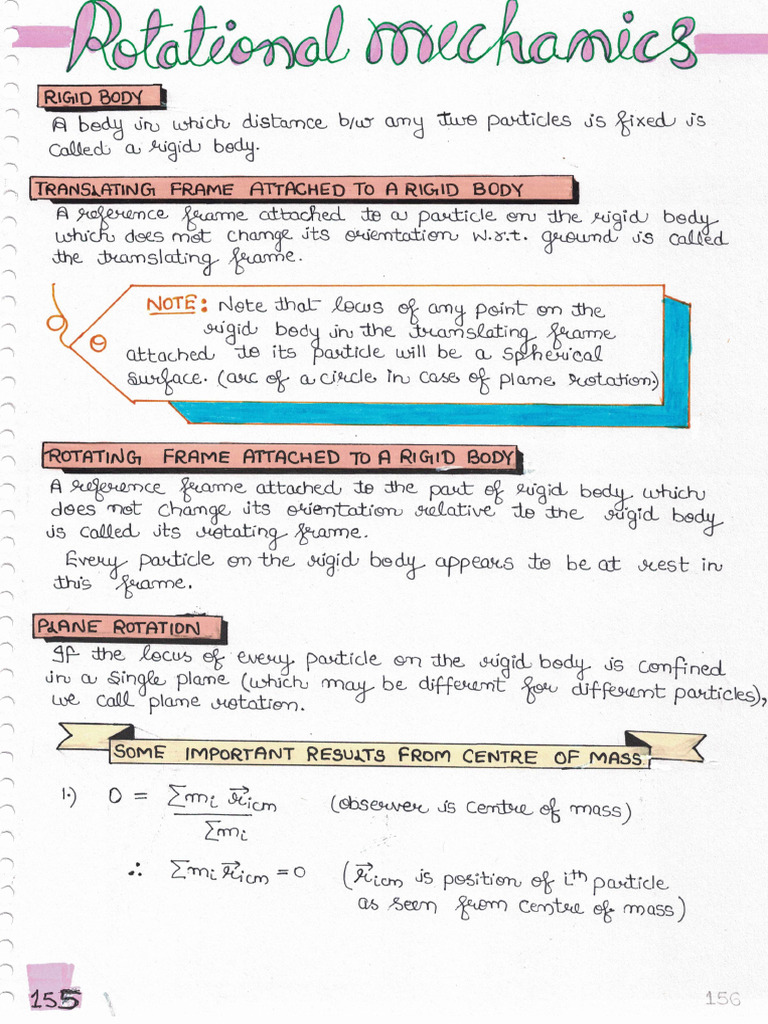 Rotational mechanics
RIGID BODY
A body in which distance b/w any two particles is fixed is
called a rigid body.
TRANSLATING FRAME ATTACHED TO A RIGID BODY
A reference frame attached to a particle on the rigid body
which does not change its orientation w.r.t. ground is called
the translating frame.
NOTE: Note that locus of any point on the
rigid body in the translating frame
attached to its particle will be a spherical
surface. (arc of a circle in case of plane rotation.)
ROTATING FRAME ATTACHED TO A RIGID BODY
A reference frame attached to the part of rigid body which
does not change its orientation relative to the rigid body
is called its rotating frame.
Every particle on the rigid body appears to be at rest in
this frame.
PLANE ROTATION
If the locus of every particle on the rigid body is confined
in a single plane (which may be different for different particles),
we call plane rotation.
SOME IMPORTANT RESULTS FROM CENTRE OF MASS
1.) 0 = Σmᵢ r⃗ᵢcm / Σmᵢ (observer is centre of mass)
∴ Σmᵢ r⃗ᵢcm = 0 (r⃗ᵢcm is position of ith particle
as seen from centre of mass)
155
156